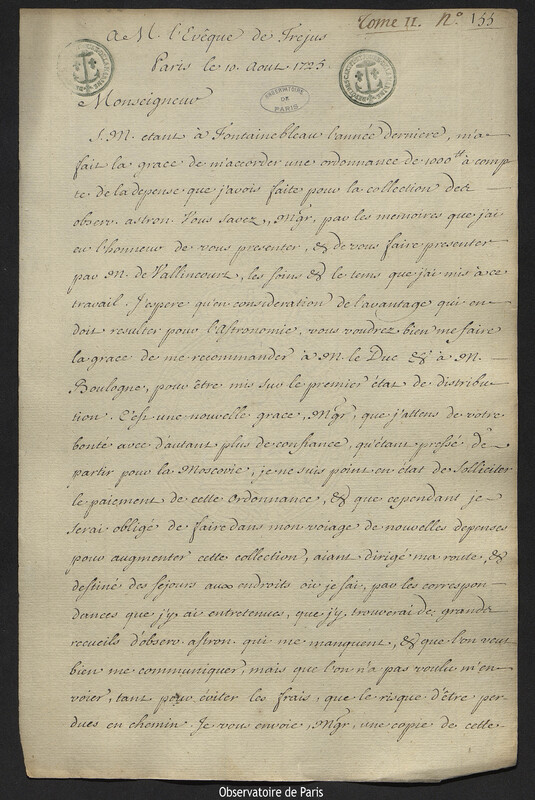 Tome II. N.º 155
A M. l'Evêque de Frejus
Paris le 10. Aout 1725.
OBSERVATOIRE
DE
PARIS
Monseigneur
S. M. etant à Fontainebleau l'année derniere, m'a
fait la grace de m'accorder une ordonnance de 1000 tt à comp
te de la depense que j'avois faite pour la collection des
observ. astron. Vous savez, Mgr, par les memoires que j'ai
eu l'honneur de vous presenter, & de vous faire presenter
par M. de Vallincourt, les soins & le tems que j'ai mis à ce
travail. J'espere qu'en consideration de l'avantage qui en
doit resulter pour l'astronomie, vous voudrez bien me faire
la grace de me recommander à M. le Duc & à M.
Boulogne, pour être mis sur le premier état de distribu
tion. C'est une nouvelle grace, Mgr, que j'attens de votre
bonté avec d'autant plus de confiance, qu'étant pressé de
partir pour la Moscovie, je ne suis point en état de solliciter
le paiement de cette ordonnance, & que cependant je
serai obligé de faire dans mon voiage de nouvelles depenses
pour augmenter cette collection, aiant dirigé ma route, &
destiné des sejours aux endroits où je sai, par les correspon
dances que j'y ai entretenues, que j'y trouverai de grands
recueils d'observ. astron. qui me manquent, & que l'on veut
bien me communiquer, mais que l'on n'a pas voulu m'en
voier, tant pour éviter les frais, que le risque d'être per
dues en chemin. Je vous envoie, Mgr, une copie de cette
Observatoire de Paris